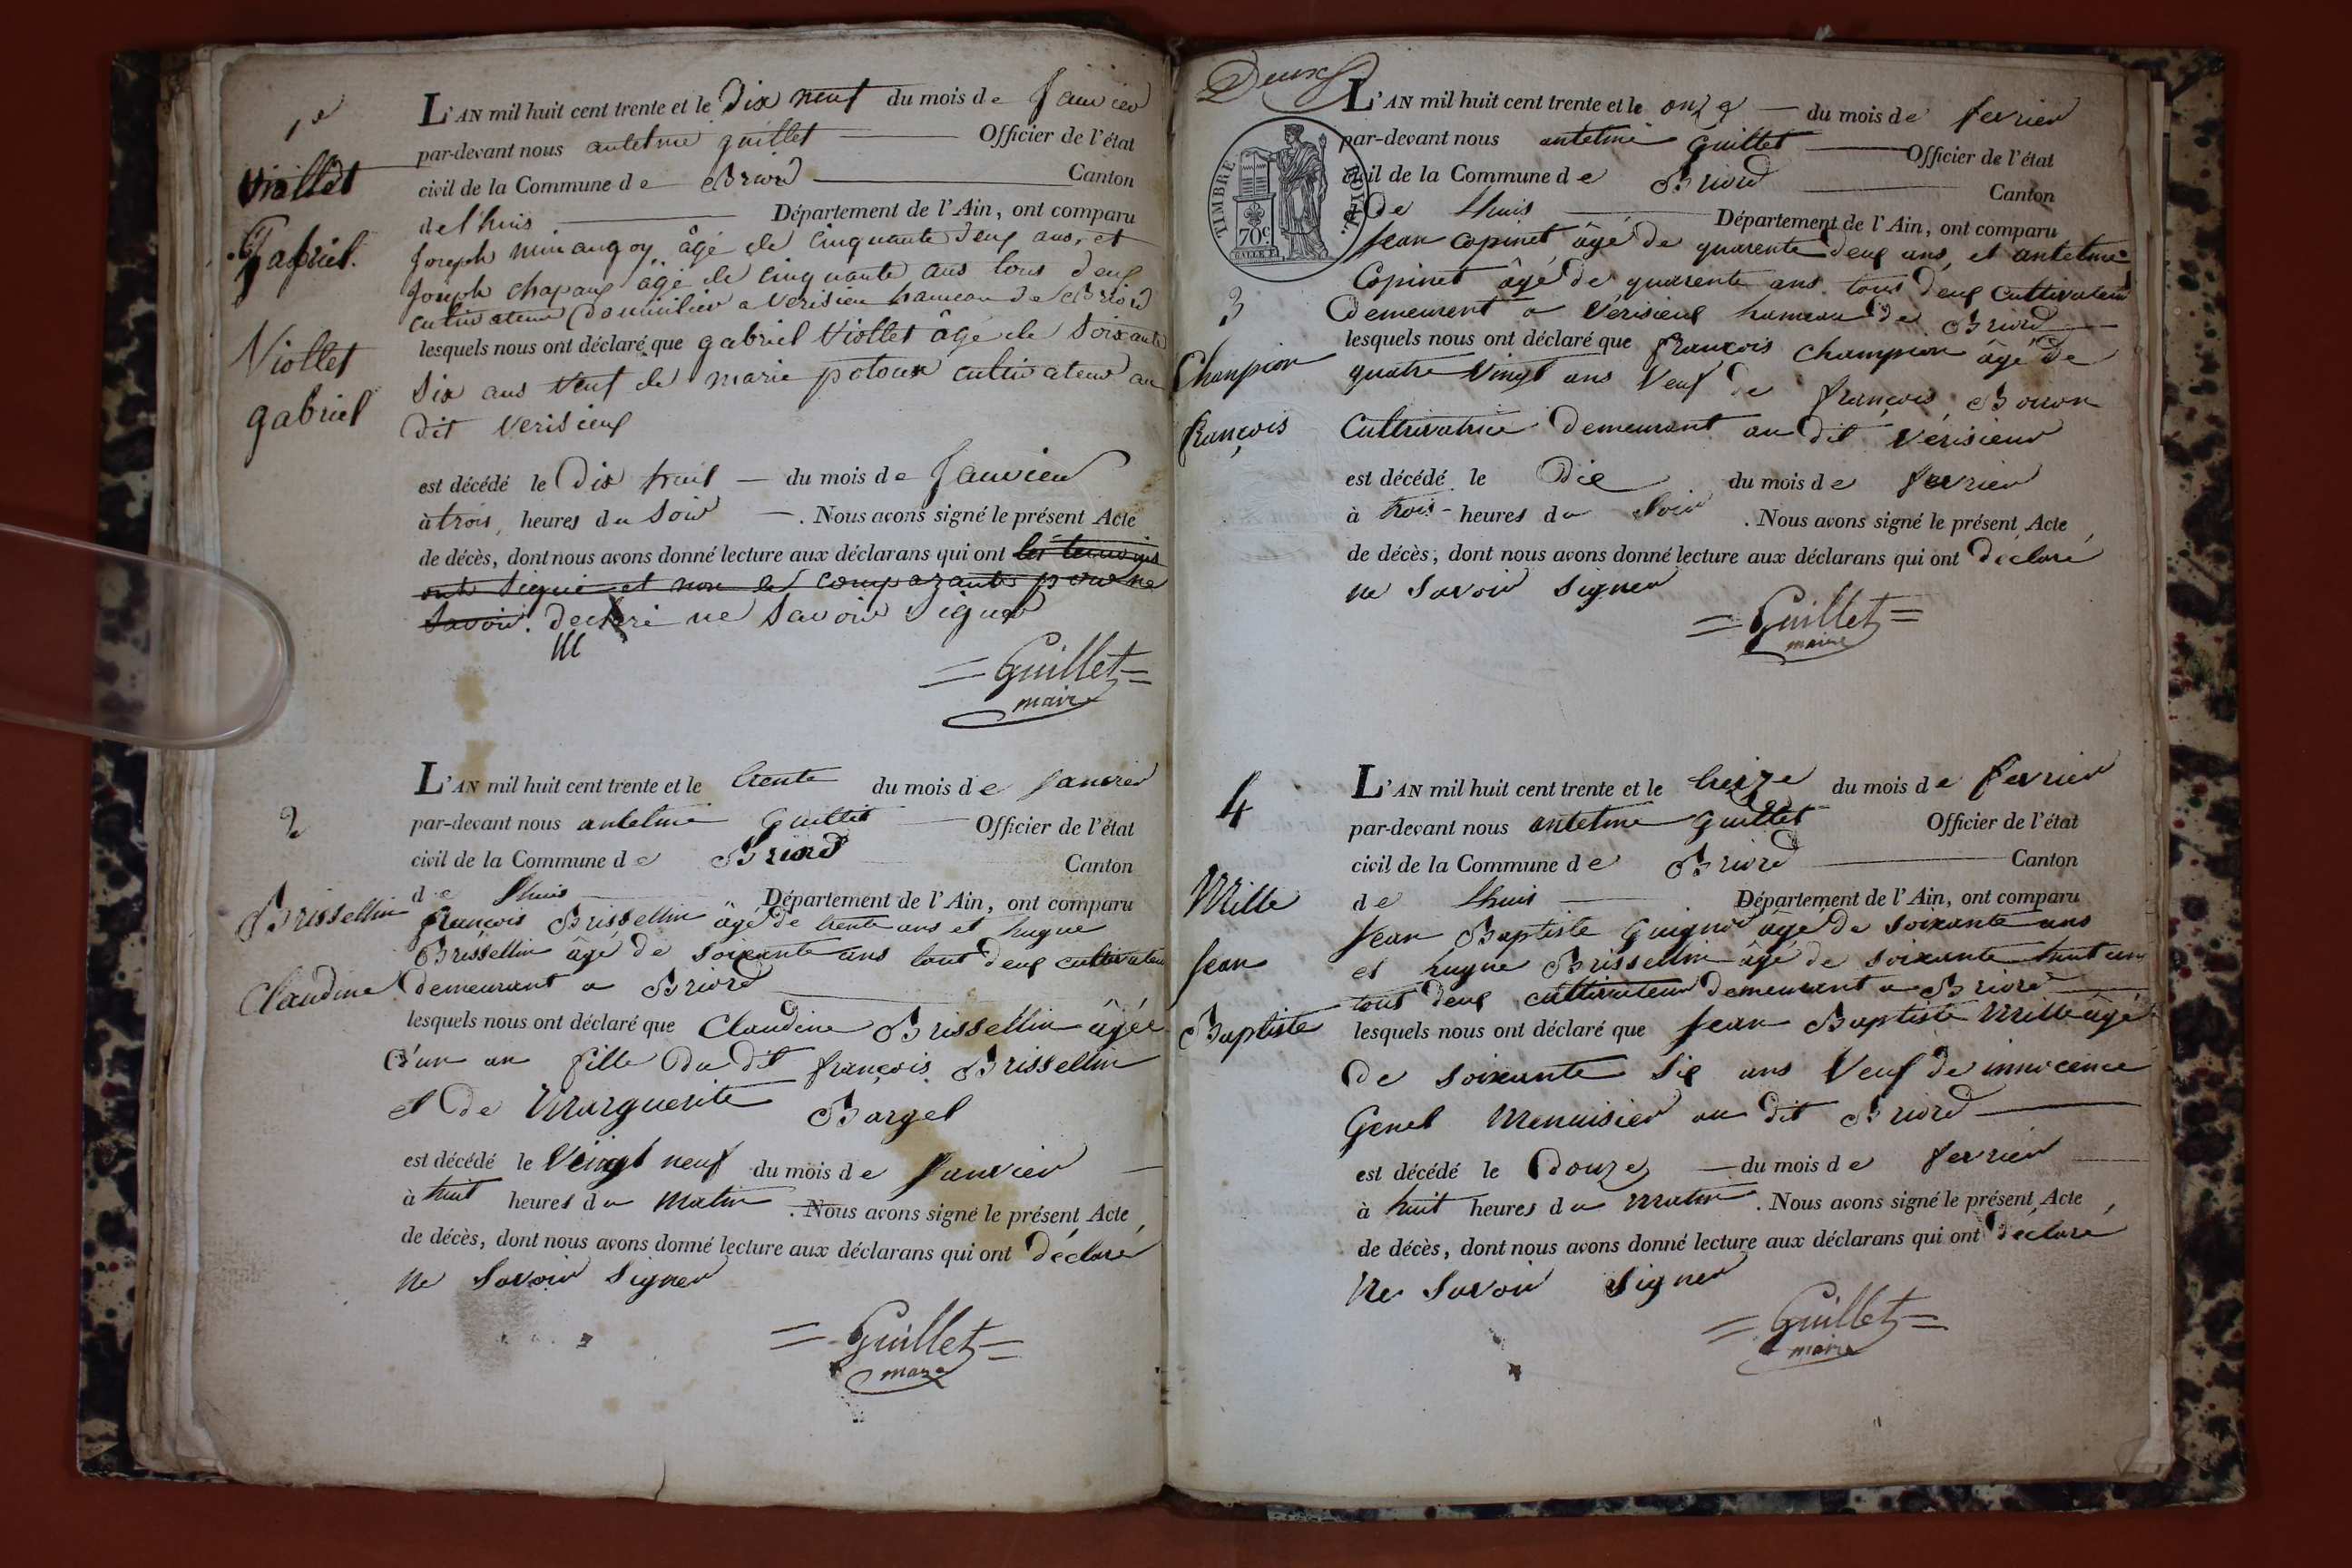 1e
Viollet
Gabriel.
Viollet
gabriel
L'AN mil huit cent trente et le Dix neuf du mois de Janvier
par-devant nous antelme guillet Officier de l'état
civil de la Commune de Briord Canton
de lhuis Département de l'Ain, ont comparu
Joseph mimangoy âgé de Cinquante deux ans, et
Joseph chapaux âgé de cinquante ans tous deux
cultivateur domicilier a verisieu hameau de Briord
lesquels nous ont déclaré que gabriel Viollet âgé de Soixante
Six ans veuf de marie potoux cultivateur au
dit verisieux
est décédé le Dix huit du mois de Janvier
à trois heures du Soir. Nous avons signé le présent Acte
de décès, dont nous avons donné lecture aux déclarans qui ont les temoins
ont signé et non les comparants pour ne
savoir. declaré ne Savoir Signer
Guillet
maire
2
Brissellin
Claudine
L'AN mil huit cent trente et le trente du mois de Janvier
par-devant nous antelme Guillet Officier de l'état
civil de la Commune de Briord Canton
de Lhuis Département de l'Ain, ont comparu
François Brissellin âgé de trente ans et hugue
Brissellin âgé de soixante ans tout deux cultivateur
demeurant a Briord
lesquels nous ont déclaré que Claudine Brissellin âgée
d'un an fille du dit françois Brissellin
et de Marguerite Bargel
est décédé le Veingt neuf du mois de Janvier
à huit heures du Matin. Nous avons signé le présent Acte
de décès, dont nous avons donné lecture aux déclarans qui ont déclaré
ne Savoir Signer
Guillet
maire
Deux
TIMBRE ROYAL.
70c
3
Champion
françois
L'AN mil huit cent trente et le onze du mois de fevrier
par-devant nous antelme Guillet Officier de l'état
civil de la Commune de Briord Canton
de Lhuis Département de l'Ain, ont comparu
Jean Copinet âgé de quarente deux ans, et antelme
Copinet âgé de quarente ans tous deux Cultivateur
demeurent a Vérisieux hameau de Briord
lesquels nous ont déclaré que François Champion âgé de
quatre Vingt ans Veuf de françois Boiron
Cultivatrice demeurant au dit Vérisieux
est décédé le Dix du mois de fevrier
à trois heures du Soir. Nous avons signé le présent Acte
de décès, dont nous avons donné lecture aux déclarans qui ont déclaré
ne Savoir Signer
Guillet
maire
4
Mille
Jean
Baptiste
L'AN mil huit cent trente et le treize du mois de fevrier
par-devant nous antelme Guillet Officier de l'état
civil de la Commune de Briord Canton
de Lhuis Département de l'Ain, ont comparu
Jean Baptiste Guignod âgé de soixante ans
et hugue Brissellin âgé de soixante huit ans
tout deux cultivateur demeurant a Briord
lesquels nous ont déclaré que Jean Baptiste Mille âgé
de soixante six ans Veuf de innocence
Genet Menuisier au dit Briord
est décédé le Douze du mois de fevrier
à huit heures du matin. Nous avons signé le présent Acte
de décès, dont nous avons donné lecture aux déclarans qui ont déclaré
Ne Savoir Signer
Guillet
maire